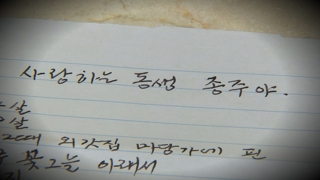 사랑하는 동생 종주야.
살
살
그대 외갓집 마당가에 핀
꽃그늘 아래서